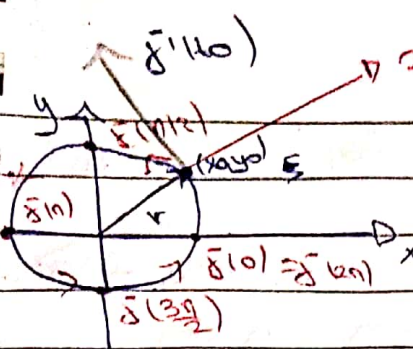 γ̄'(t0)
y
γ̄(π/2)
(x0,y0)
γ̄(π)
r
γ̄(0) = γ̄(2π)
x
γ̄(3π/2)